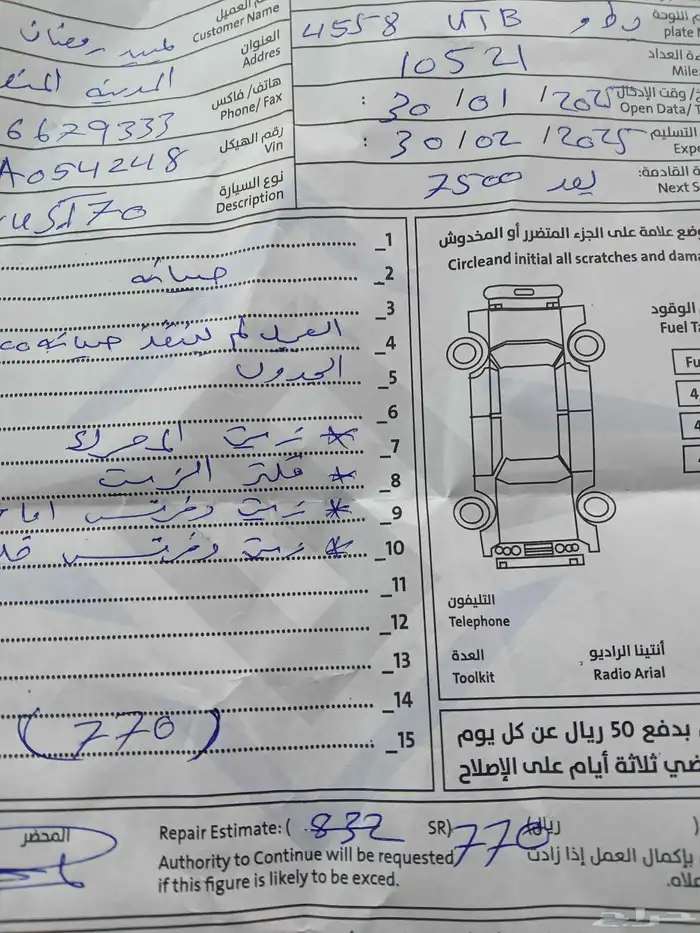 العميل
Customer Name
رمضان
العنوان
Addres
المدينة
هاتف/ فاكس
Phone/ Fax
6629333
رقم الهيكل
Vin
A054248
نوع السيارة
Description
م اللوحة
plate
4558 UTB
ة العداد
Mile
10521
وقت الإدخال
Open Data/ T
30/01/2025
التسليم
Expe
30/02/2025
ة القادمة:
Next S
بعد 7500
1_
2_ صيانه
3_
4_ العميل لم ينفذ صيانه
5_ الجدول
6_
7_ * زيت المحرك
8_ * فلتر الزيت
9_ * زيت دفرنس اما
10_ * زيت دفرنس
11_
12_
13_
14_
15_ (770)
وضع علامة على الجزء المتضرر أو المخدوش
Circleand initial all scratches and dama
الوقود
Fuel Ta
Fu
4
4
التليفون
Telephone
العدة
Toolkit
أنتينا الراديو
Radio Arial
بدفع 50 ريال عن كل يوم
ضي ثلاثة أيام على الإصلاح
المحضر
Repair Estimate: ( 832 SR) 770 ريال( )
Authority to Continue will be requested
if this figure is likely to be exced.
بإكمال العمل إذا زادت
علاه.
حراج